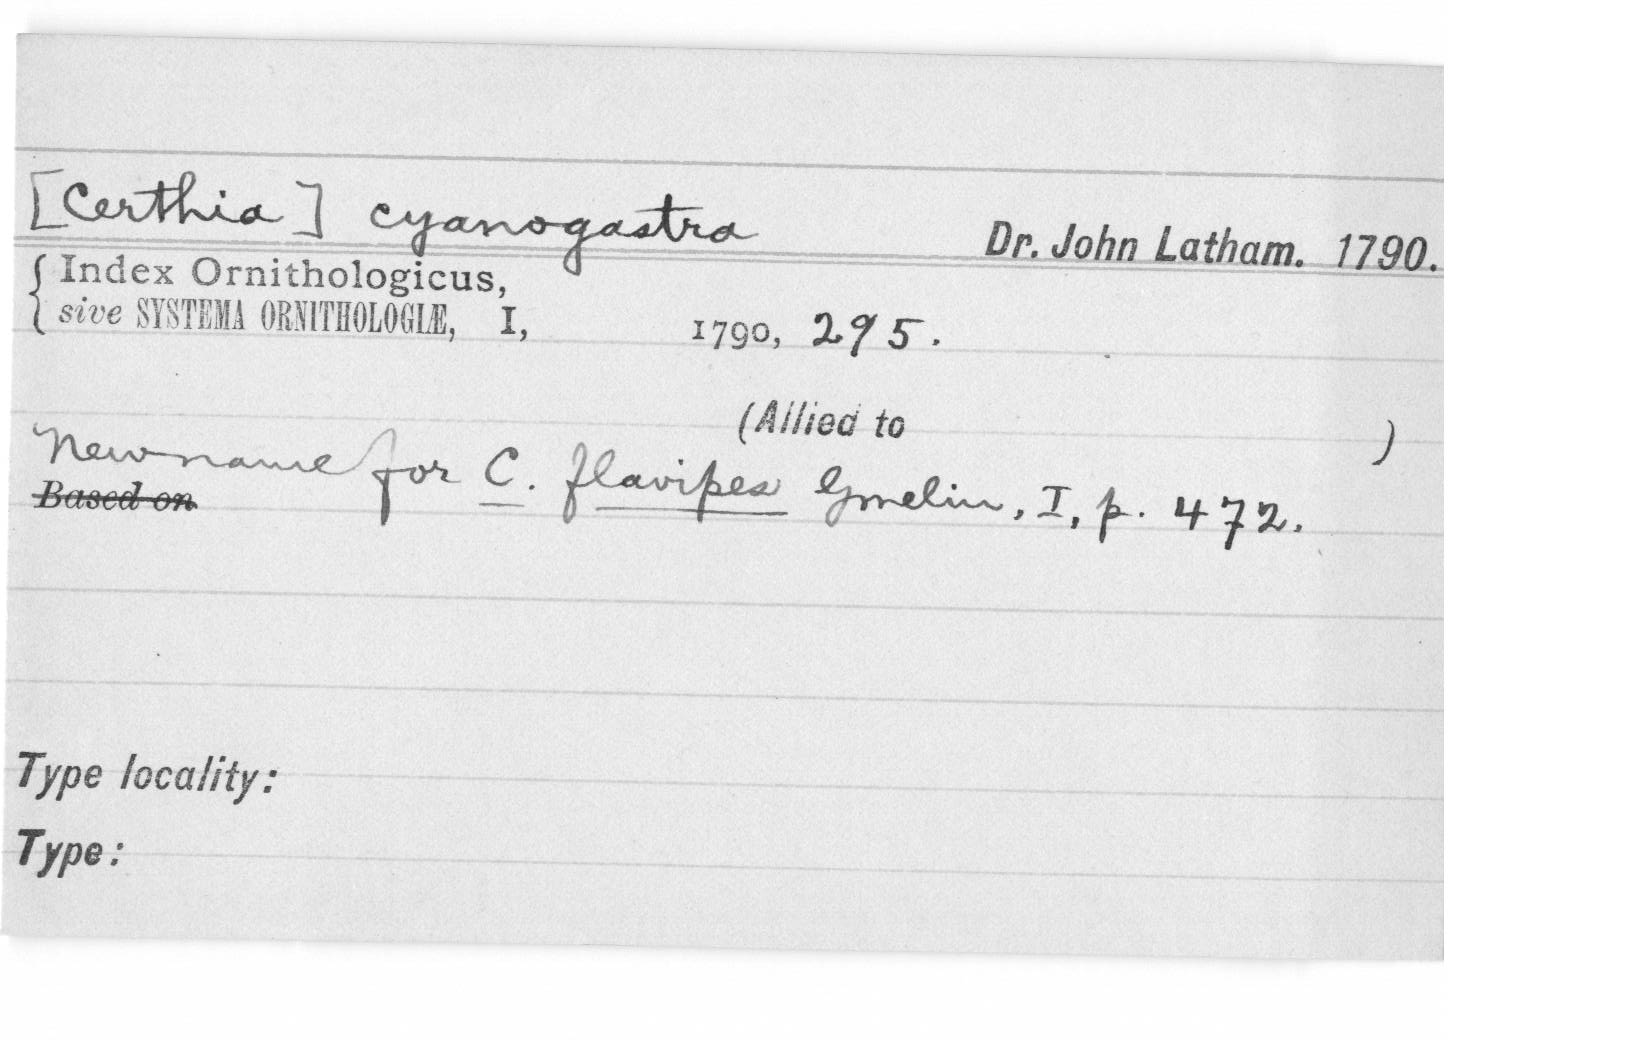 [Certhia] cyanogastra Dr. John Latham. 1790.
{ Index Ornithologicus,
sive SYSTEMA ORNITHOLOGIÆ, I, 1790, 295.
(Allied to )
New name for C. flavipes Gmelin, I, p. 472.
Based on
Type locality:
Type: